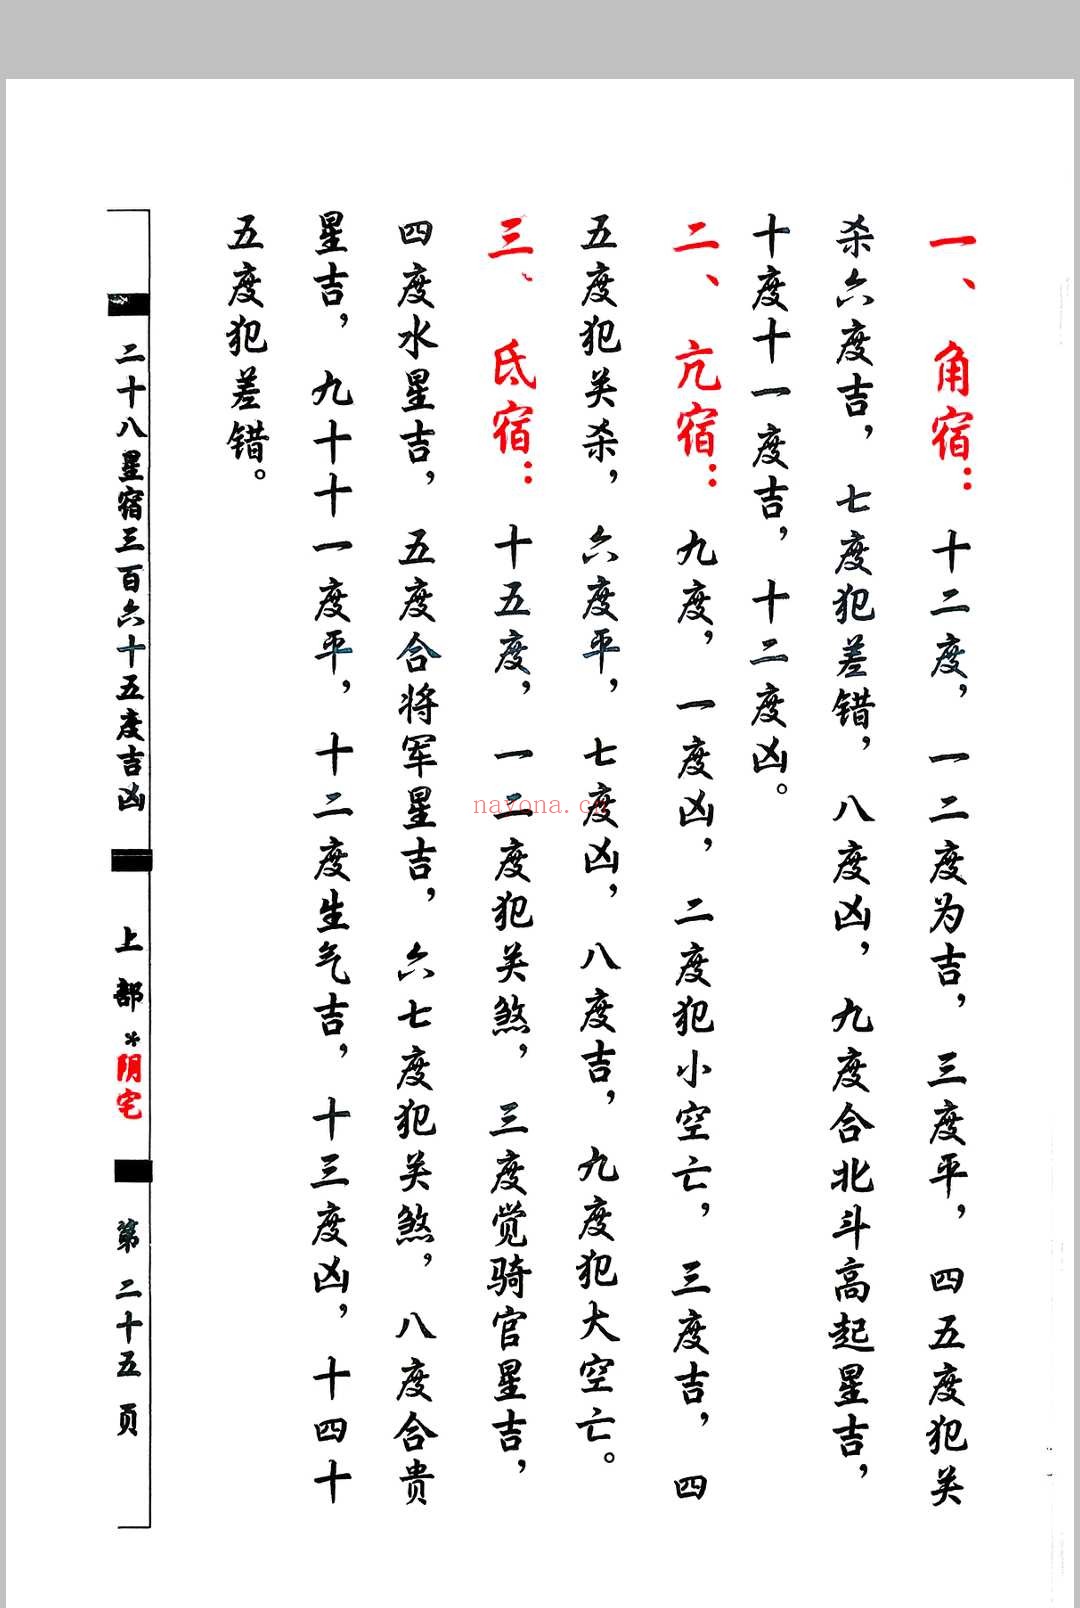 一、角宿：十二度，一二度为吉，三度平，四五度犯关
杀六度吉，七度犯差错，八度凶，九度合北斗高起星吉，
十度十一度吉，十二度凶。
二、亢宿：九度，一度凶，二度犯小空亡，三度吉，四
五度犯关杀，六度平，七度凶，八度吉，九度犯大空亡。
三、氐宿：十五度，一二度犯关煞，三度觉骑官星吉，
四度水星吉，五度合将军星吉，六七度犯关煞，八度合贵
星吉，九十十一度平，十二度生气吉，十三度凶，十四十
五度犯差错。
二十八星宿三百六十五度吉凶
上部*阴宅
第二十五页
nayona.cn